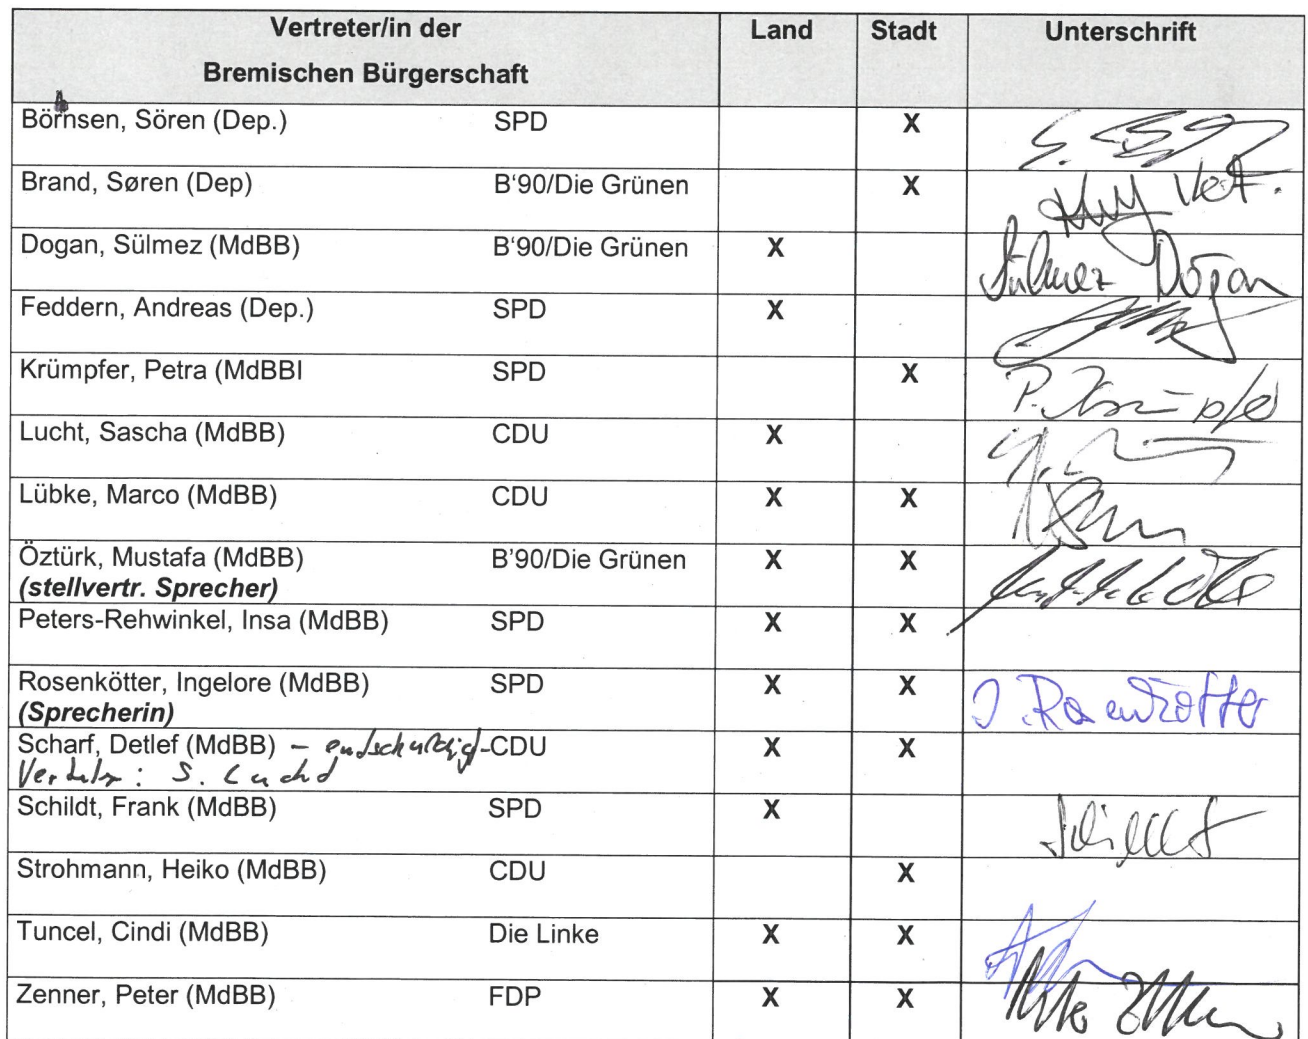 Vertreter/in der Land Stadt Unterschrift
Bremischen Bürgerschaft
Börnsen, Sören (Dep.) SPD X
Brand, Søren (Dep) B‘90/Die Grünen X Vert.
Dogan, Sülmez (MdBB) B‘90/Die Grünen X Sülmez Doğan
Feddern, Andreas (Dep.) SPD X
Krümpfer, Petra (MdBBI SPD X P. Krümpfer
Lucht, Sascha (MdBB) CDU X
Lübke, Marco (MdBB) CDU X X
Öztürk, Mustafa (MdBB) B’90/Die Grünen X X
(stellvertr. Sprecher)
Peters-Rehwinkel, Insa (MdBB) SPD X X
Rosenkötter, Ingelore (MdBB) SPD X X I. Rosenkötter
(Sprecherin)
Scharf, Detlef (MdBB) – entschuldigt- CDU X X
Vertreter: S. Lucht
Schildt, Frank (MdBB) SPD X Schildt
Strohmann, Heiko (MdBB) CDU X
Tuncel, Cindi (MdBB) Die Linke X X
Zenner, Peter (MdBB) FDP X X